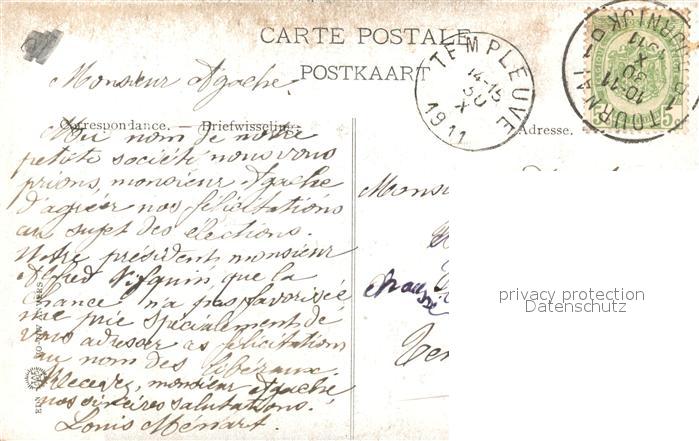 CARTE POSTALE
POSTKAART
Monsieur Agache.
Correspondance. — Briefwisseling.
Au nom de notre
petite société nous vous
prions, monsieur Agache
d'agréer nos félicitations
au sujet des élections.
Notre président monsieur
Alfred que la
chance n'a pas favorisée
me prie spécialement de
vous adresser ses félicitations
au nom des libéraux.
Recevez, monsieur Agache
nos sincères salutations.
Louis Ménart
TEMPLEUVE
14-15
30
X
1911
TOURNAI
DOORNIJK
10-11
30
X
1911
5c
Adresse.
Monsi
chaussé
Tem
privacy protection
Datenschutz